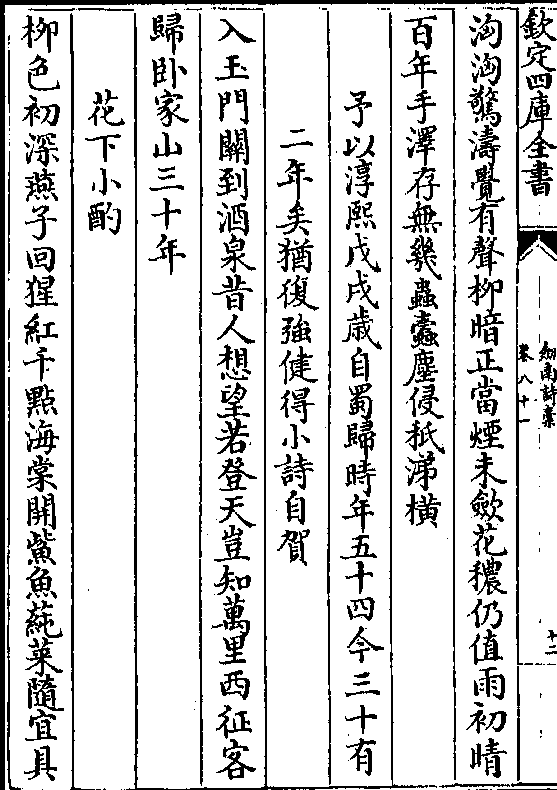 欽定四庫全書
劍南詩藁
卷八十一
十二
洶洶驚濤覺有聲柳暗正當煙未斂花穠仍值雨初晴
百年手澤存無幾蟲蠹塵侵秖涕橫
予以淳熙戊戌歲自蜀歸時年五十四今三十有
二年矣猶復強健得小詩自賀
入玉門關到酒泉昔人想望若登天豈知萬里西征客
歸臥家山三十年
花下小酌
柳色初深燕子回猩紅千點海棠開鮆魚蓴菜隨宜具